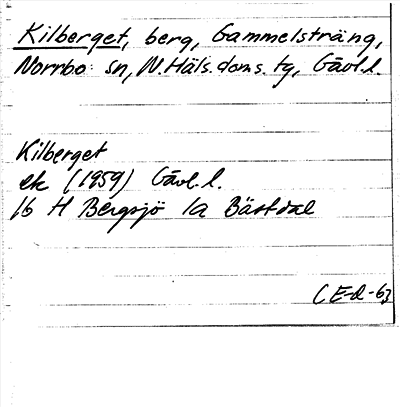 Kilberget, berg, Gammelsträng,
Norrbo sn, N.Häls.doms.tg, Gävl.l.
Kilberget
ek (1959) Gävl.l.
16 H Bergsjö 1a Bästdal
CE-d-63